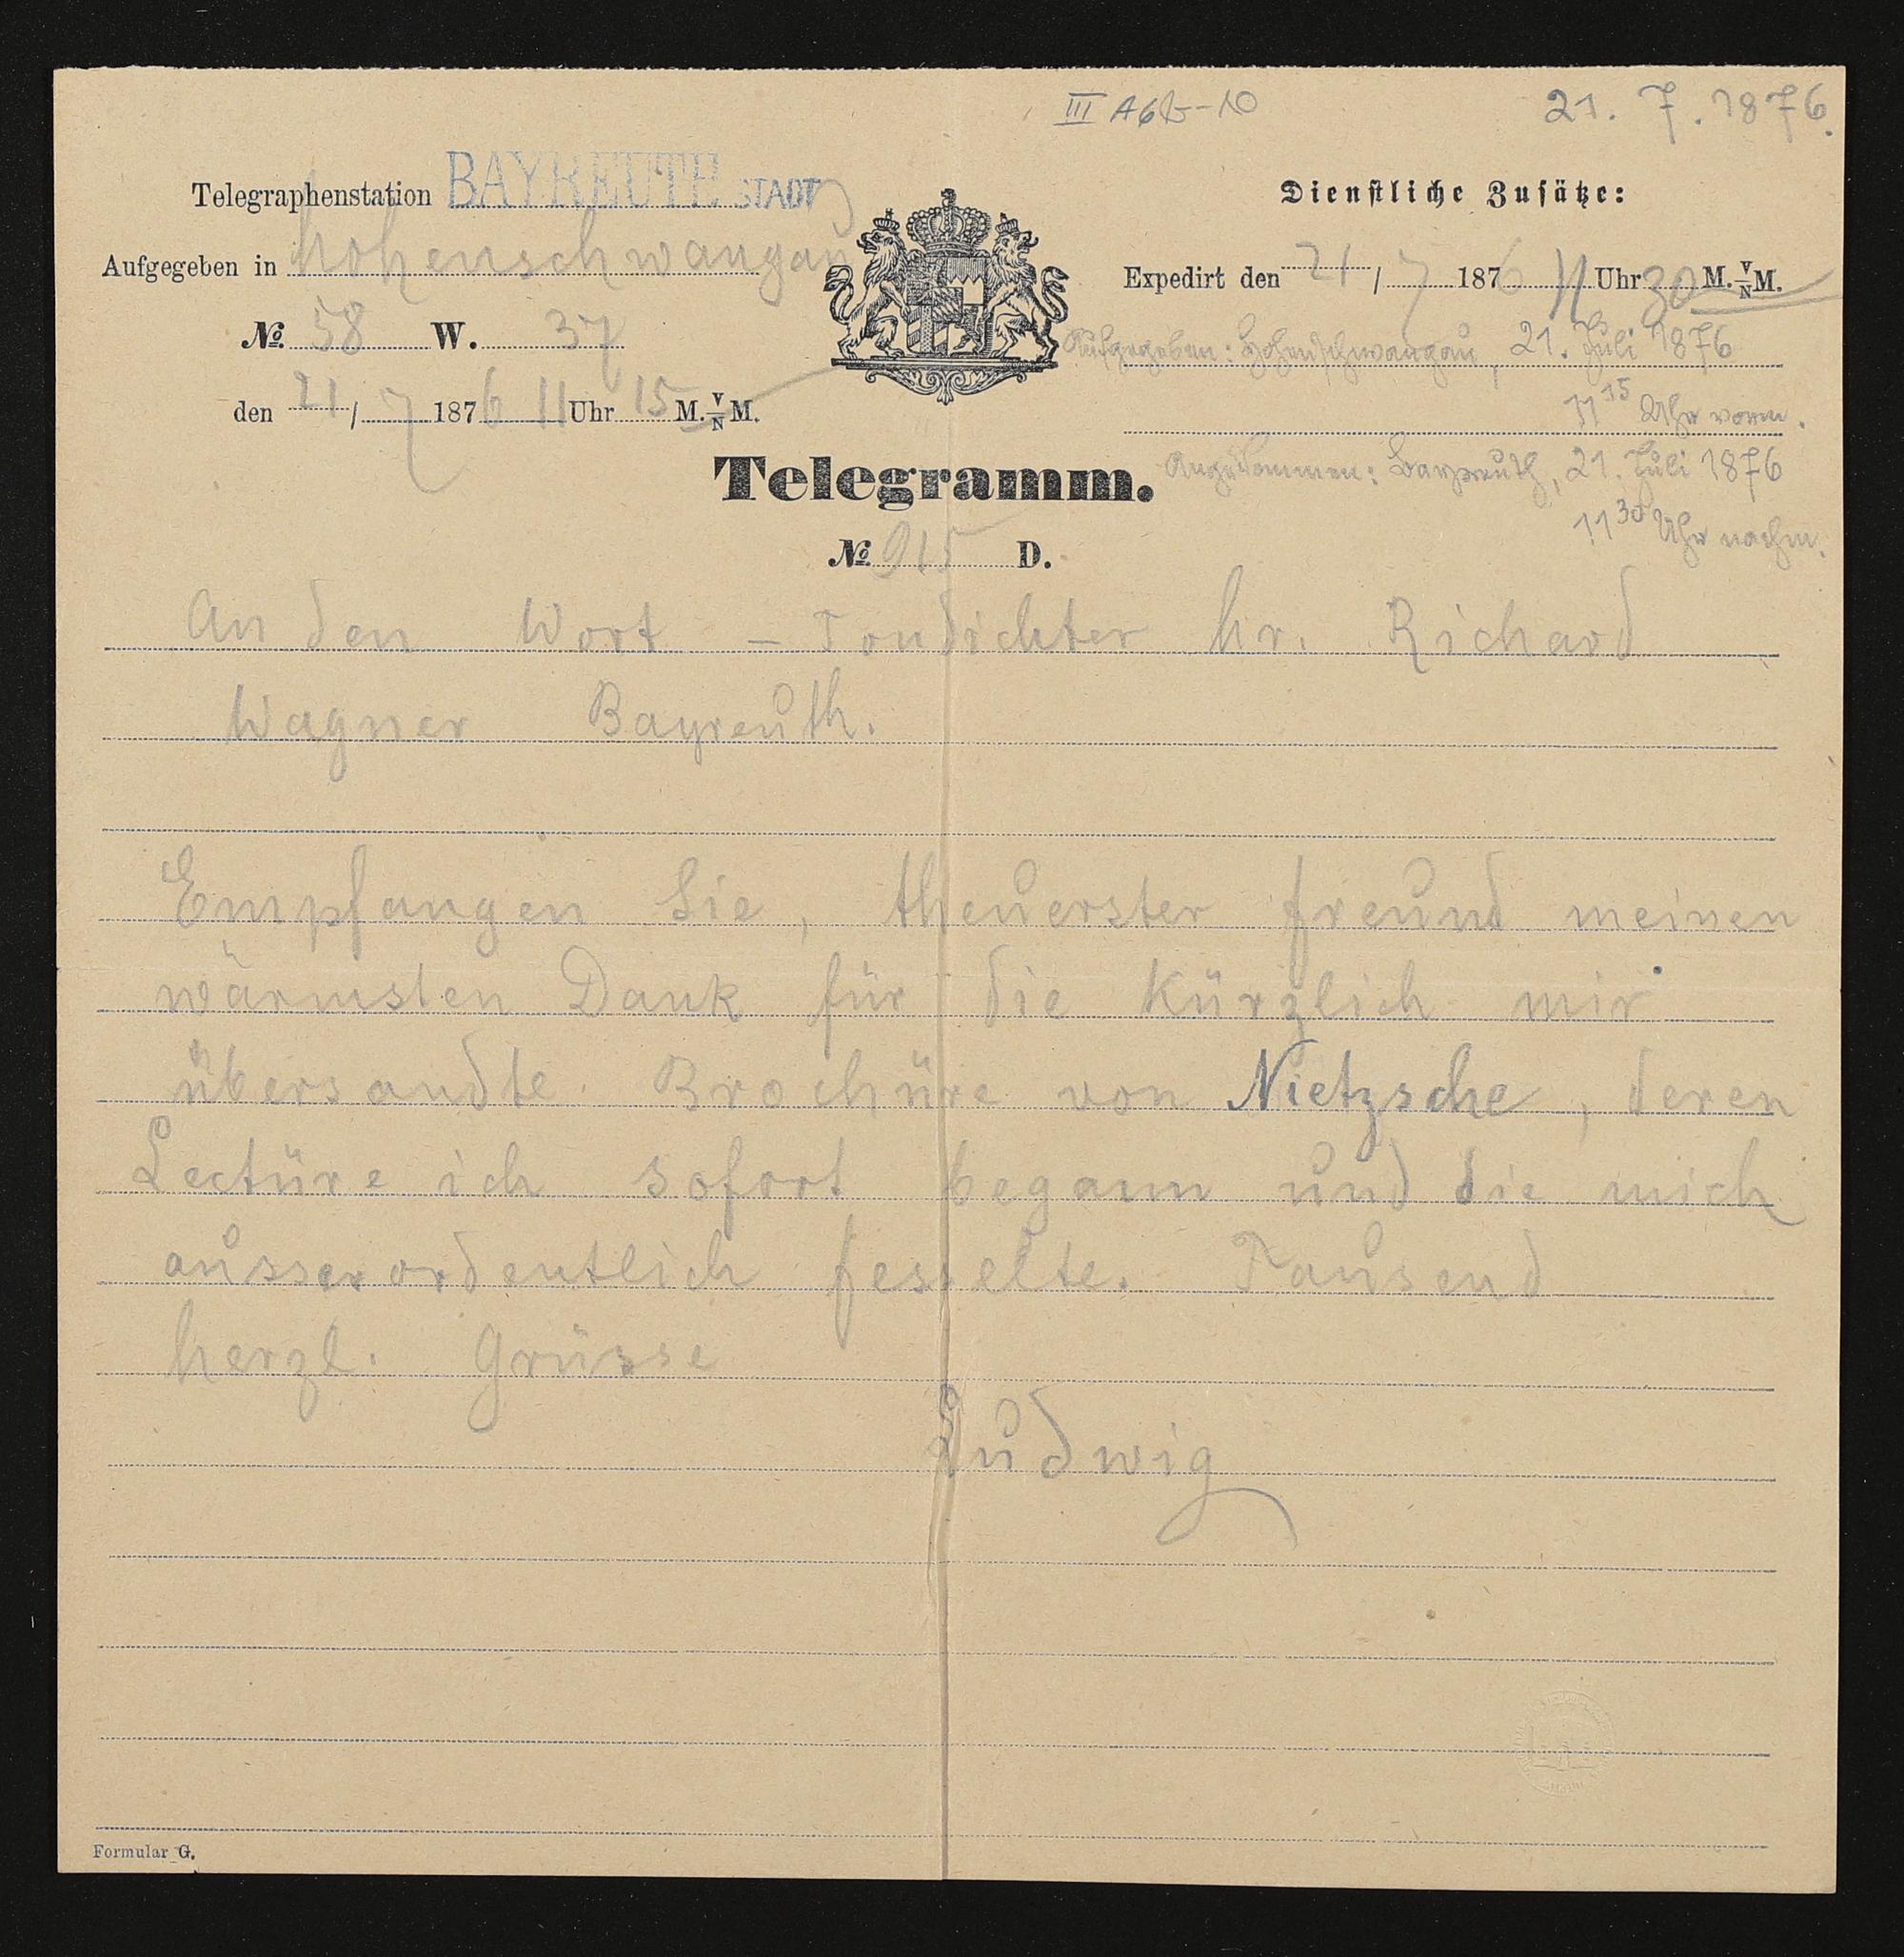 III A 6b-10
21. 7. 1876.
Telegraphenstation BAYREUTH STADT
Aufgegeben in hohenschwangau
№ 58 W. 37
den 21/7 1876 11 Uhr 15 M. V/N M.
Dienstliche Zusätze:
Expedirt den 21/7 1876 11 Uhr 30 M. V/N M.
Aufgegeben: Hohenschwangau, 21. Juli 1876
11 15 Uhr vorm.
Angekommen: Bayreuth, 21. Juli 1876
11 30 Uhr nachm.
Telegramm.
№ 915 D.
An den Wort - Tondichter hr. Richard
Wagner Bayreuth.
Empfangen Sie, theuerster freund meinen
wärmsten Dank für die kürzlich mir
übersandte Brochüre von Nietzsche, deren
Lectüre ich sofort begann und die mich
ausserordentlich fesselte. Tausend
herzl. Grüsse
Ludwig
Formular G.